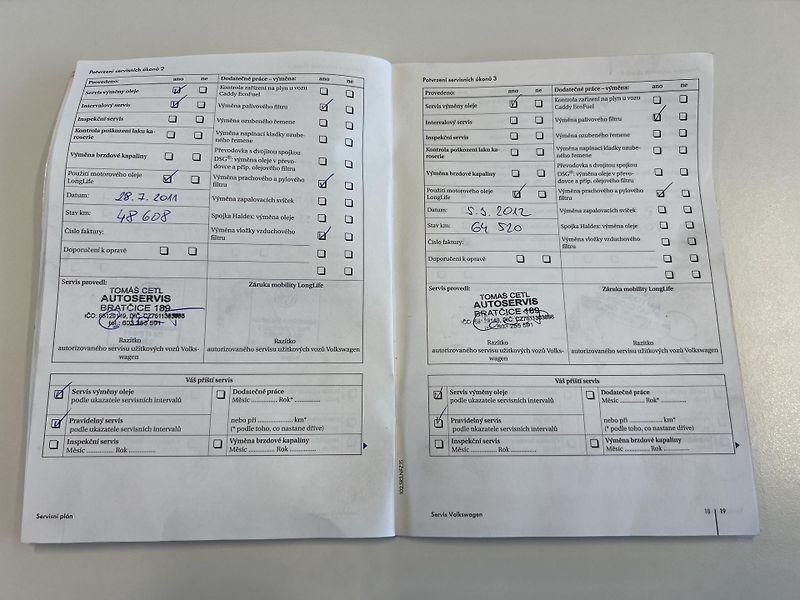 Potvrzení servisních úkonů 2
Provedeno: ano ne
Servis výměny oleje
Intervalový servis
Inspekční servis
Kontrola poškození laku ka-
roserie
Výměna brzdové kapaliny
Použití motorového oleje
LongLife
Datum: 28.7.2011
Stav km: 48 608
Číslo faktury:
Doporučení k opravě
Dodatečné práce – výměna: ano ne
Kontrola zařízení na plyn u vozu
Caddy EcoFuel
Výměna palivového filtru
Výměna ozubeného řemene
Výměna napínací kladky ozube-
ného řemene
Převodovka s dvojitou spojkou
DSG®: výměna oleje v převo-
dovce a příp. olejového filtru
Výměna prachového a pylového
filtru
Výměna zapalovacích svíček
Spojka Haldex: výměna oleje
Výměna vložky vzduchového
filtru
Servis provedl:
TOMÁŠ CETL
AUTOSERVIS
BRATČICE 189
Razítko
autorizovaného servisu užitkových vozů Volks-
wagen
Záruka mobility LongLife
Razítko
autorizovaného servisu užitkových vozů Volkswagen
Váš příští servis
Servis výměny oleje
podle ukazatele servisních intervalů
Pravidelný servis
podle ukazatele servisních intervalů
Inspekční servis
Měsíc .............. Rok ..............
Dodatečné práce
Měsíc .............. Rok* ..............
nebo při ...................... km*
(* podle toho, co nastane dříve)
Výměna brzdové kapaliny
Měsíc .............. Rok ..............
Servisní plán
Potvrzení servisních úkonů 3
Provedeno: ano ne
Servis výměny oleje
Intervalový servis
Inspekční servis
Kontrola poškození laku ka-
roserie
Výměna brzdové kapaliny
Použití motorového oleje
LongLife
Datum: 5.9.2012
Stav km: 64 520
Číslo faktury:
Doporučení k opravě
Dodatečné práce – výměna: ano ne
Kontrola zařízení na plyn u vozu
Caddy EcoFuel
Výměna palivového filtru
Výměna ozubeného řemene
Výměna napínací kladky ozube-
ného řemene
Převodovka s dvojitou spojkou
DSG®: výměna oleje v převo-
dovce a příp. olejového filtru
Výměna prachového a pylového
filtru
Výměna zapalovacích svíček
Spojka Haldex: výměna oleje
Výměna vložky vzduchového
filtru
Servis provedl:
TOMÁŠ CETL
AUTOSERVIS
BRATČICE 189
Razítko
autorizovaného servisu užitkových vozů Volks-
wagen
Záruka mobility LongLife
Razítko
autorizovaného servisu užitkových vozů Volkswagen
Váš příští servis
Servis výměny oleje
podle ukazatele servisních intervalů
Pravidelný servis
podle ukazatele servisních intervalů
Inspekční servis
Měsíc .............. Rok ..............
Dodatečné práce
Měsíc .............. Rok* ..............
nebo při ...................... km*
(* podle toho, co nastane dříve)
Výměna brzdové kapaliny
Měsíc .............. Rok ..............
Servis Volkswagen
18 19